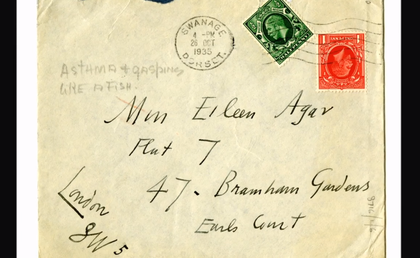 SWANAGE
4 - PM
26 OCT
1935
DORSET.
ASTHMA + GASPING
LIKE A FISH.
Miss Eileen Agar
Flat 7
47 - Bramham Gardens
Earls Court
London
SW 5